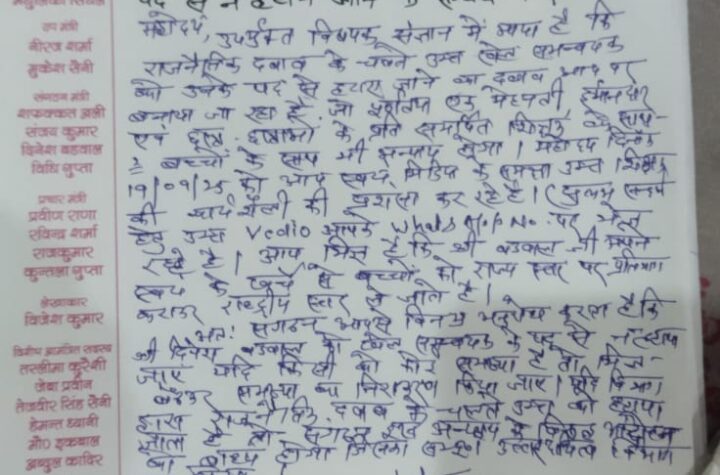 उप मंत्री
नीरज शर्मा
मुकेश सैनी
संगठन मंत्री
शफक्कत अली
संजय कुमार
दिनेश बडवाल
विधि गुप्ता
प्रचार मंत्री
प्रवीण राणा
रविन्द्र शर्मा
राजकुमार
कुन्तला गुप्ता
लेखाकार
विजेश कुमार
विशेष आमंत्रित सदस्य
तस्लीमा कुरैशी
जेबा प्रवीन
तेजवीर सिंह सैनी
हेमन्त ध्यानी
मौ० इकबाल
अब्दुल कादिर
महोदय, उपर्युक्त विषयक संज्ञान में आया है कि
राजनैतिक दबाव के चलते उक्त खेल समन्वयक
को उनके पद से हटाए जाने का दबाव आप पर
बनाया जा रहा है। जो एक मेहनती ईमानदार
एवं छात्र-छात्राओं के प्रति समर्पित शिक्षक के साथ-
2 बच्चों के साथ भी अन्याय होगा। महोदय दिनांक
19/09/25 को आप स्वयं मिडिया के समक्ष उक्त शिक्षक
की कार्य शैली की प्रशंसा कर रहे है। (सुलभ सन्दर्भ
हेतु उक्त Vedio आपके WhatsApp No. पर भेज
रहे है)। आप भिज्ञ है कि श्री बडवाल जी अपने
स्वयं के खर्चे से बच्चों को राज्य स्तर पर प्रतिभाग
कराकर राष्ट्रीय स्तर ले जाते है।
अतः संगठन आपसे विनम्र अनुरोध करता है कि
श्री दिनेश बडवाल को खेल समन्वयक के पद से न हटाया
जाए यदि किसी को कोई समस्या है तो मिल-
बैठकर समस्या का निराकरण किया जाए। यदि विभाग
द्वारा राजनैतिक दबाव के चलते उक्त को हटाया
जाता है तो संगठन इस अन्याय के खिलाफ आंदोलन
को बाध्य होगा जिसका सम्पूर्ण उत्तरदायित्व विभाग